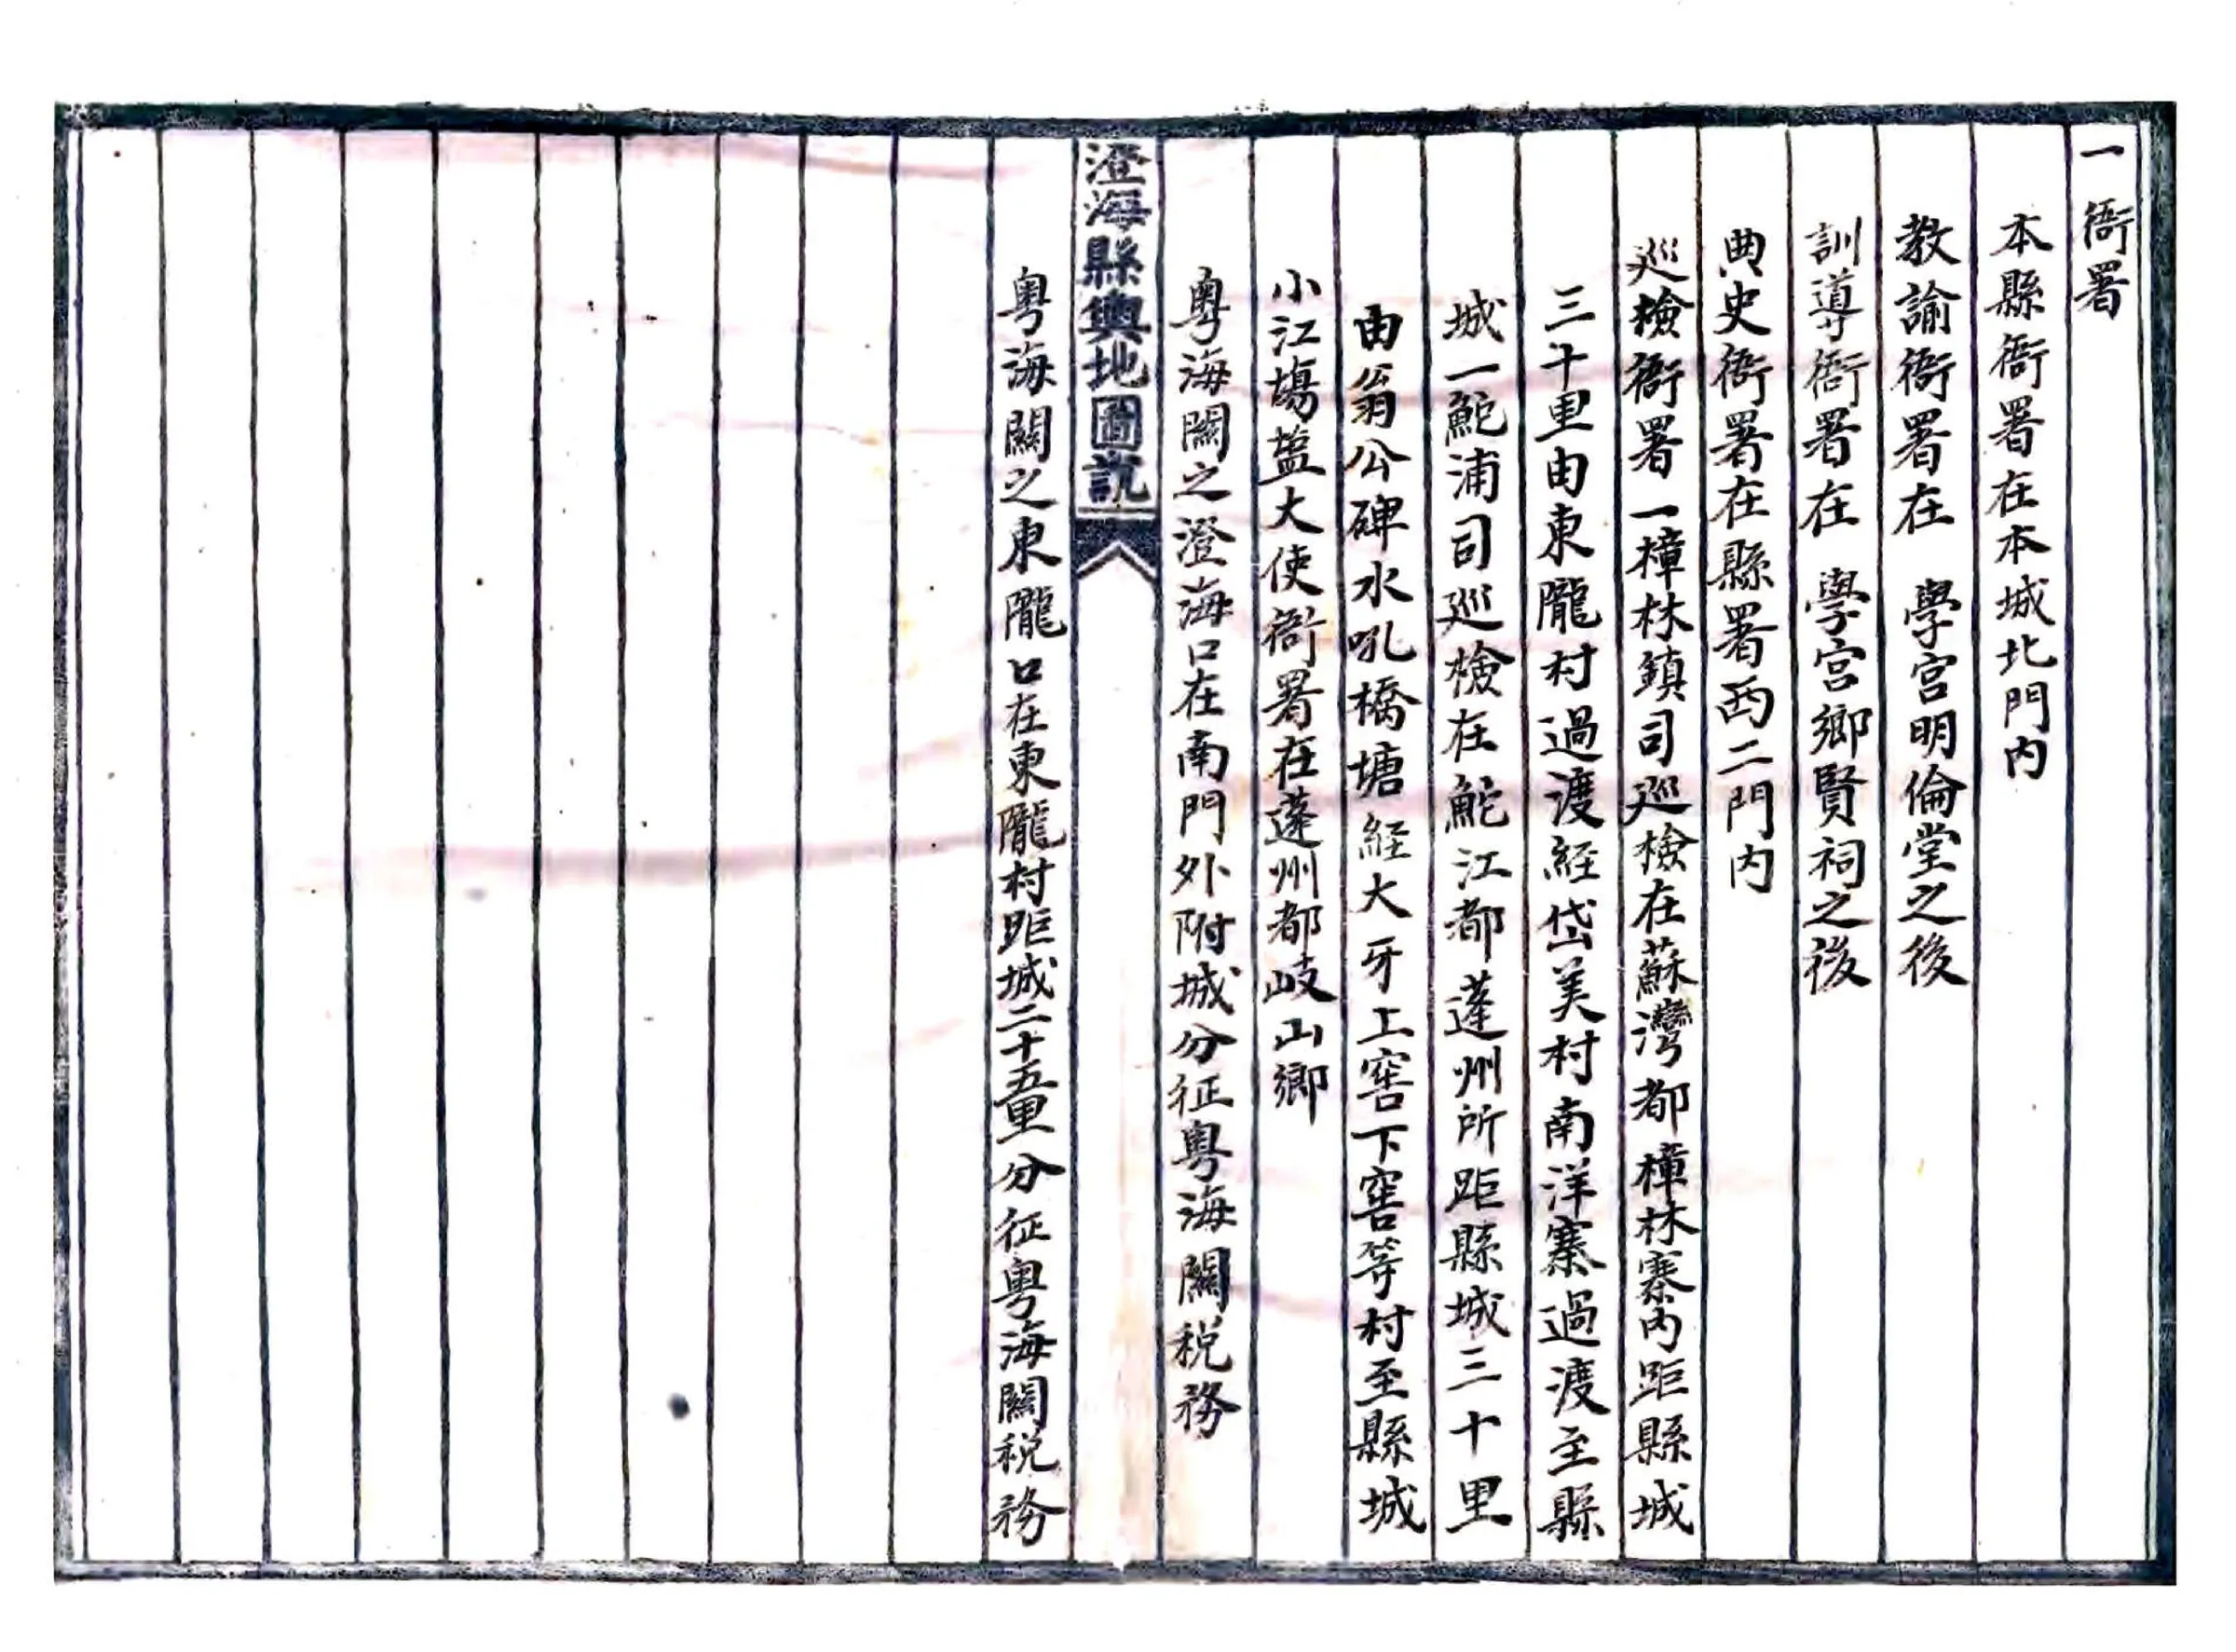 一衙署
本縣衙署在本城北門内
教諭衙署在　學宮明倫堂之後
訓導衙署在　學宮鄉賢祠之後
典史衙署在縣署西二門内
巡檢衙署一樟林鎮司巡檢在蘇灣都樟林寨内距縣城
三十里由東隴村過渡經岱美村南洋寨過渡至縣
城一鮀浦司巡檢在鮀江都蓬州所距縣城三十里
由翁公碑水吼橋塘經大牙上窖下窖等村至縣城
小江場塩大使衙署在蓬州都岐山鄉
粤海關之澄海口在南門外附城分征粤海關税務
澄海縣輿地圖說
粤海關之東隴口在東隴村距城二十五里分征粤海關税務